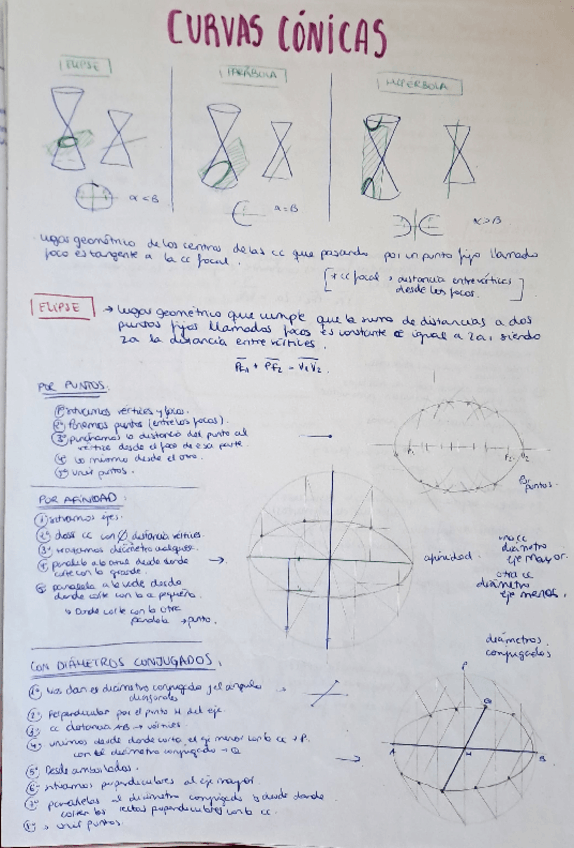 CURVAS CÓNICAS
ELIPSE
PARÁBOLA
HIPÉRBOLA
α<B
α=B
α>B
lugar geométrico de los centros de las cc que pasando por un punto fijo llamado
foco es tangente a la cc focal.
[*cc focal → distancia entre vértices
desde los focos.]
ELIPSE → lugar geométrico que cumple que la suma de distancias a dos
puntos fijos llamados focos es constante e igual a 2a, siendo
2a la distancia entre vértices.
PF1 + PF2 = V1V2.
POR PUNTOS:
1º situamos vértices y focos.
2º Ponemos puntos (entre los focos).
3º pinchamos la distancia del punto al
vértice desde el foco de esa parte.
4º lo mismo desde el otro.
5º unir puntos.
F1
F2
V2
Por
puntos.
POR AFINIDAD:
① situamos ejes.
2º dos cc con ∅ distancia vértices.
3º trazamos diámetro cualquiera.
4º paralela a la horizontal desde donde
corte con la grande.
5º paralela a la vertical desde
donde corte con la pequeña.
↳ Donde corte con la otra
paralela → punto.
afinidad.
una cc
diámetro
eje mayor.
otra cc
diámetro
eje menor.
CON DIÁMETROS CONJUGADOS:
1º Nos dan el diámetro conjugado y el ángulo
2º Perpendicular por el punto M del eje.
3º cc distancia AB → vértices.
4º unimos desde donde corta el eje menor con la cc → P.
con el diámetro conjugado → Q
5º Desde ambos lados.
6º situamos perpendiculares al eje mayor.
7º paralelas al diámetro conjugado y desde donde
corten las rectas perpendiculares con la cc.
8º → unir puntos.
diámetros
conjugados
P
Q
A
M
B